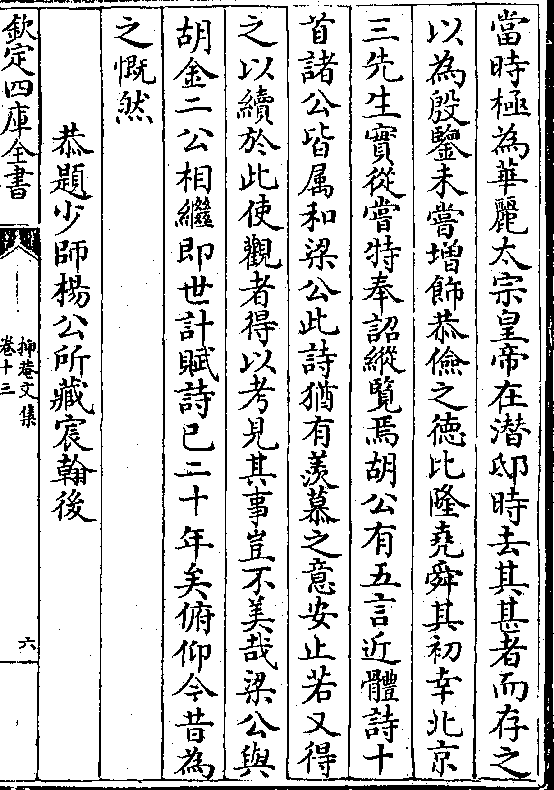 當時極為華麗太宗皇帝在潜邸時去其甚者而存之
以為殷鑒未嘗增飾恭儉之徳比隆堯舜其初幸北京
三先生實從嘗特奉詔縱覧焉胡公有五言近體詩十
首諸公皆属和梁公此詩猶有羨慕之意安止若又得
之以續於此使觀者得以考見其事豈不美哉梁公與
胡金二公相繼即世計賦詩已二十年矣俯仰今昔為
之慨然
恭題少師楊公所藏宸翰後
欽定四庫全書
抑菴文集
卷十三
六